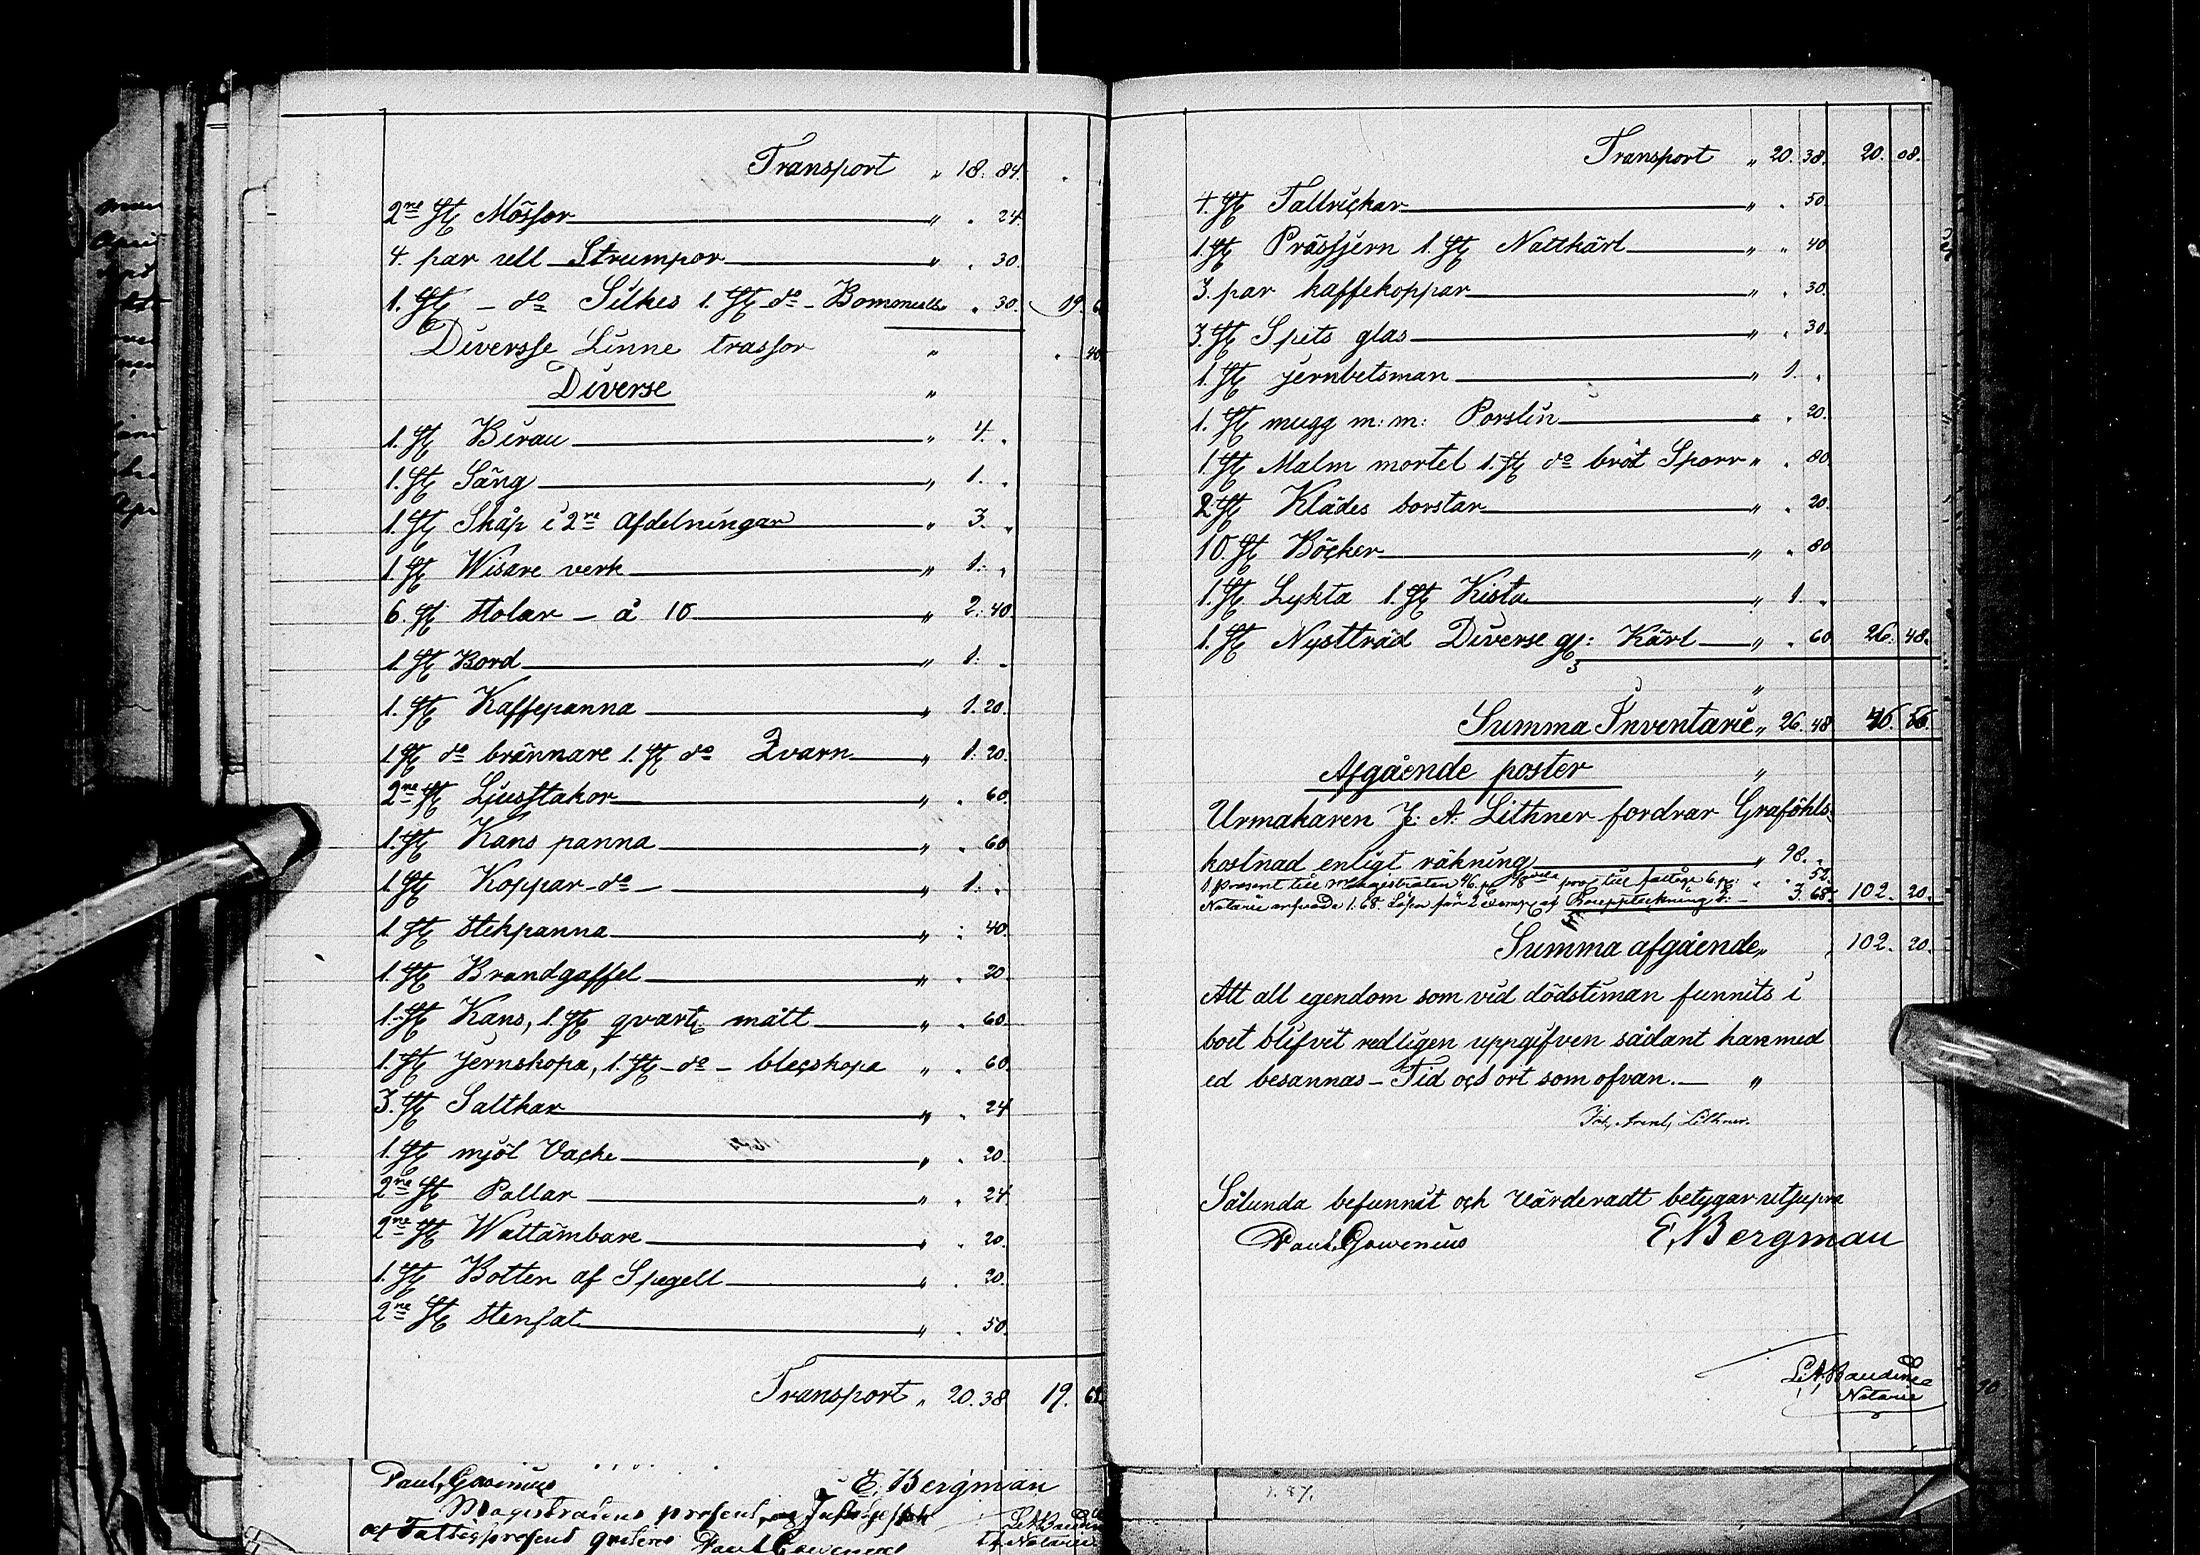 Transport " 18. 84.
2ne st Mössor " . 24
4. par ull Strumpor " . 30.
1. st - do Silkes 1. st do - Bommulls . 30. 19. 6
Diversse Linne trassor " . 40
Diverse "
1. st Birau " 4. .
1. st Säng " 1. .
1. st Skåp i 2ne afdelningar " 3. .
1. st Wisare verk " 1. .
6. st stolar - à 10 " 2. 40.
1. st Bord " 1. .
1. st Kaffepanna " 1. 20.
1 st do brännare 1. st do Qvarn " 1. 20.
2ne st Ljusstakor " . 60.
1. st Kans panna " . 60
1. st Koppar do " 1. .
1 st stekpanna " . 40.
1. st Brandgaffel " . 20
1. st Kans, 1. st qvart mått " . 60.
1. st Jernskopa, 1. st - do - bleçskopa " . 60.
3. st Saltkar " . 24
1. st mjöl Vaçke " . 20
2ne st Pallar " . 24
2ne st Wattämbare " . 20.
1. st Botten af Spegell " . 20.
2ne st stenfat " . 50.
Transport " 20. 38 19. 68.
Paul Gowenius E. Bergman
Magistratens prosent
Paul Gowenius Notarie
Transport " 20. 38. 20. 08.
4. st Tallriçkar " . 50
1. st Präsjern 1. st Nattkärl " . 40
3. par kaffekoppar " . 30.
3. st Spits glas " . 30.
1. st jernbetsman " 1. .
1. st mugg m: m: Porslin " . 20.
1. st Malm mortel 1. st do bröt Sporr " . 80
2 st Klädes borstar " . 20.
10. st Böçker " . 80
1. st Lykta 1. st Kista " 1. .
1. st Nystträd Diverse gl: Kärl " . 60 26. 48.
"
Summa Inventarie " 26. 48 46. 56.
Afgående poster "
Urmakaren J: A. Lithner fordrar Graföhls
kostnad enligt räkning " 98. .
1. prosent till Magistraten 46. p 1/8 dels pros till fattige 6 p: " . 52.
Notarie arfvode 1. 68. Lösen för 2 Exempl af Bouppteckning 2: - 3. 68. 102. 20.
Summa afgående " 102. 20.
Att all egendom som vid dödstiman funnits i
boet blifvit redligen uppgifven sådant kan med
ed besannas - Tid oçh ort som ofvan. - "
Joh, Arent, Lithner.
Sålunda befunnit och Värderadt betygar utsupra
Paul Gowenius E. Bergman
Notarie